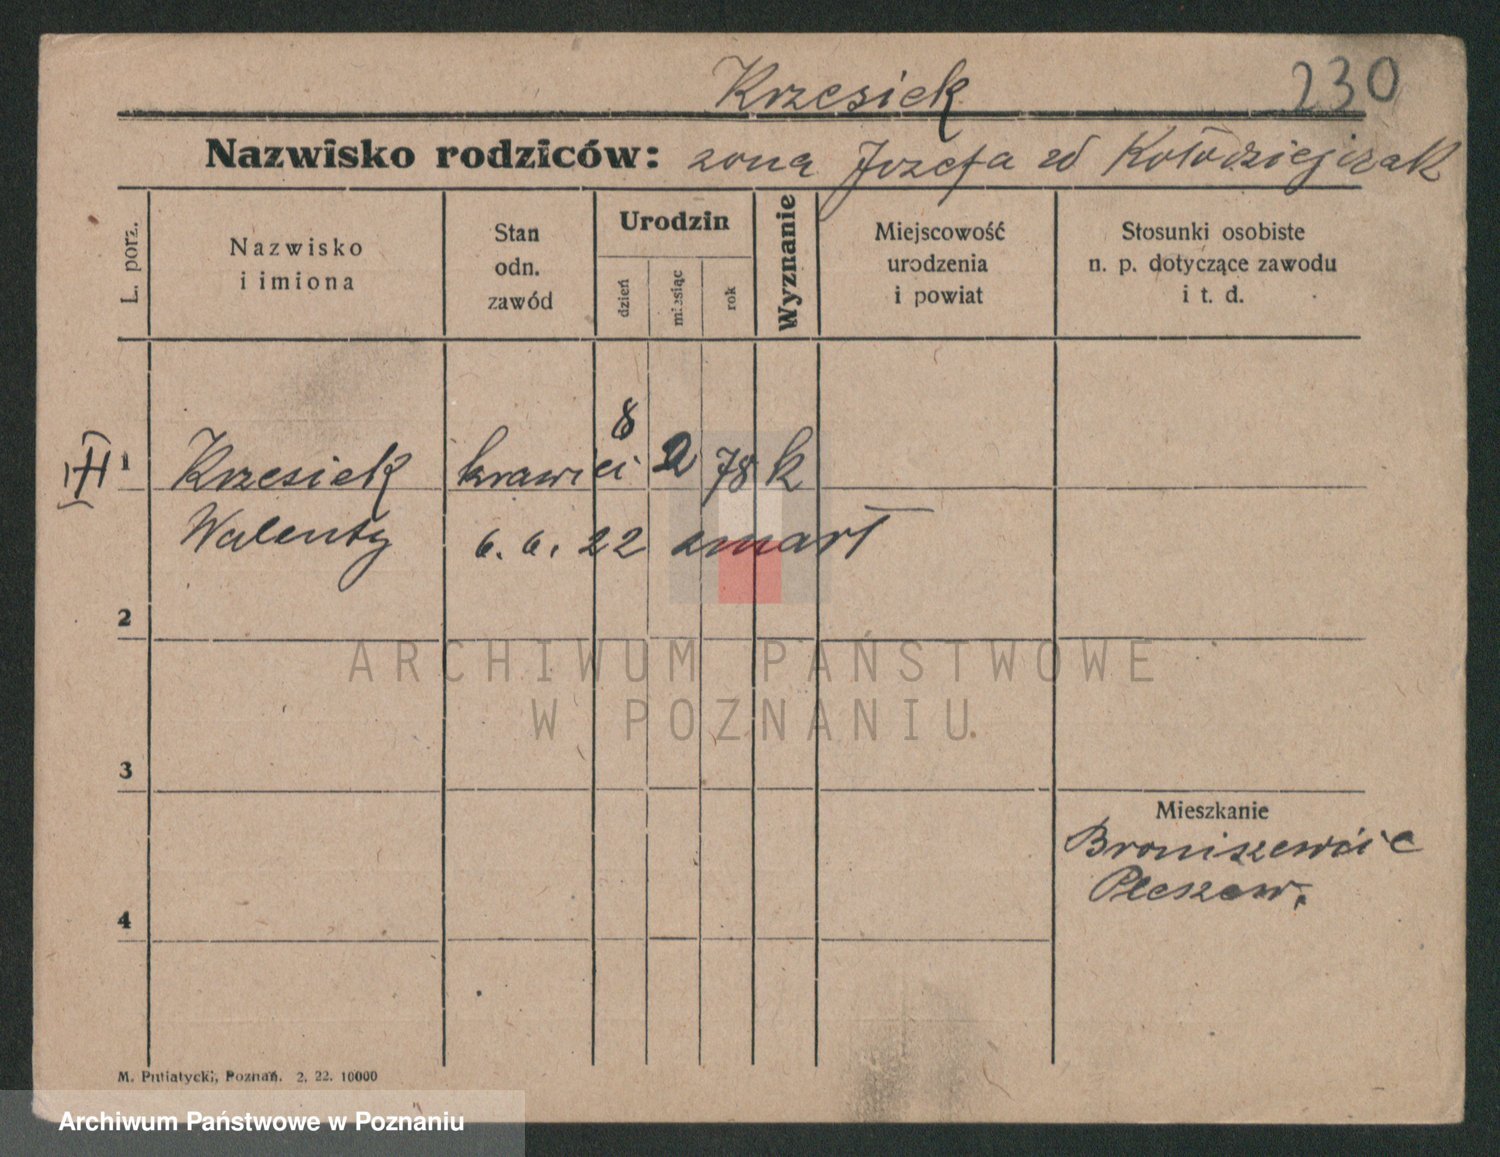 Krzesiek 230
Nazwisko rodziców: zona Jozefa zd Kołodziejczak
L. porz.
Nazwisko i imiona
Stan odn. zawód
Urodzin
dzień
miesiąc
rok
Wyznanie
Miejscowość urodzenia i powiat
Stosunki osobiste n. p. dotyczące zawodu i t. d.
1 Krzesiek krawiec 8 2 78 k
Walenty 6. 6. 22 zmarł
2
3
4
Mieszkanie
Broniszewice
Pleszew.
ARCHIWUM PAŃSTWOWE
W POZNANIU
M. Putiatycki, Poznań. 2. 22. 10000
Archiwum Państwowe w Poznaniu